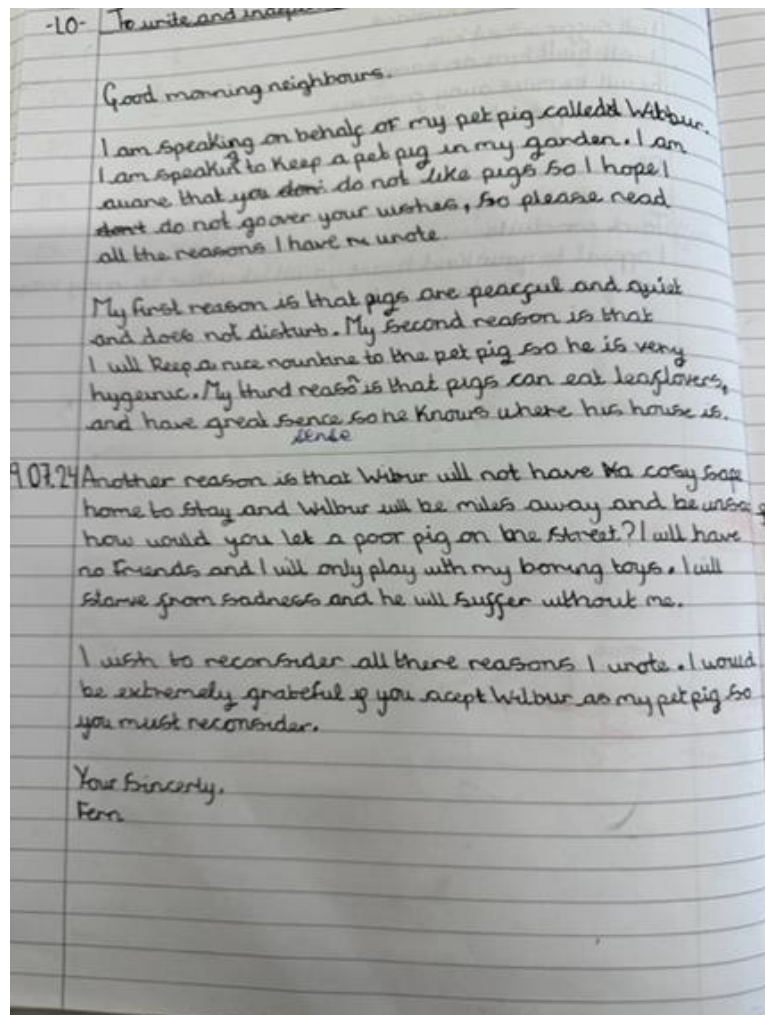 -LO- To write and
Good morning neighbours.
I am speaking on behalf of my pet pig called Wilbur.
I am speaking to keep a pet pig in my garden. I am
aware that you don't do not like pigs so I hope I
don't do not go over your wishes, so please read
all the reasons I have wrote.
My first reason is that pigs are peacful and quiet
and does not disturb. My second reason is that
I will keep a nice rountine to the pet pig so he is very
hygeinic. My third reason is that pigs can eat leaflovers,
and have great sence so he knows where his house is.
sense
9.07.24 Another reason is that Wilbur will not have a cosy safe
home to stay and Wilbur will be miles away and be unsafe
how would you let a poor pig on the street? I will have
no friends and I will only play with my boring toys. I will
starve from sadness and he will suffer without me.
I wish to reconsider all there reasons I wrote. I would
be extremely grateful if you acept Wilbur as my pet pig so
you must reconsider.
Your Sincerly,
Fern